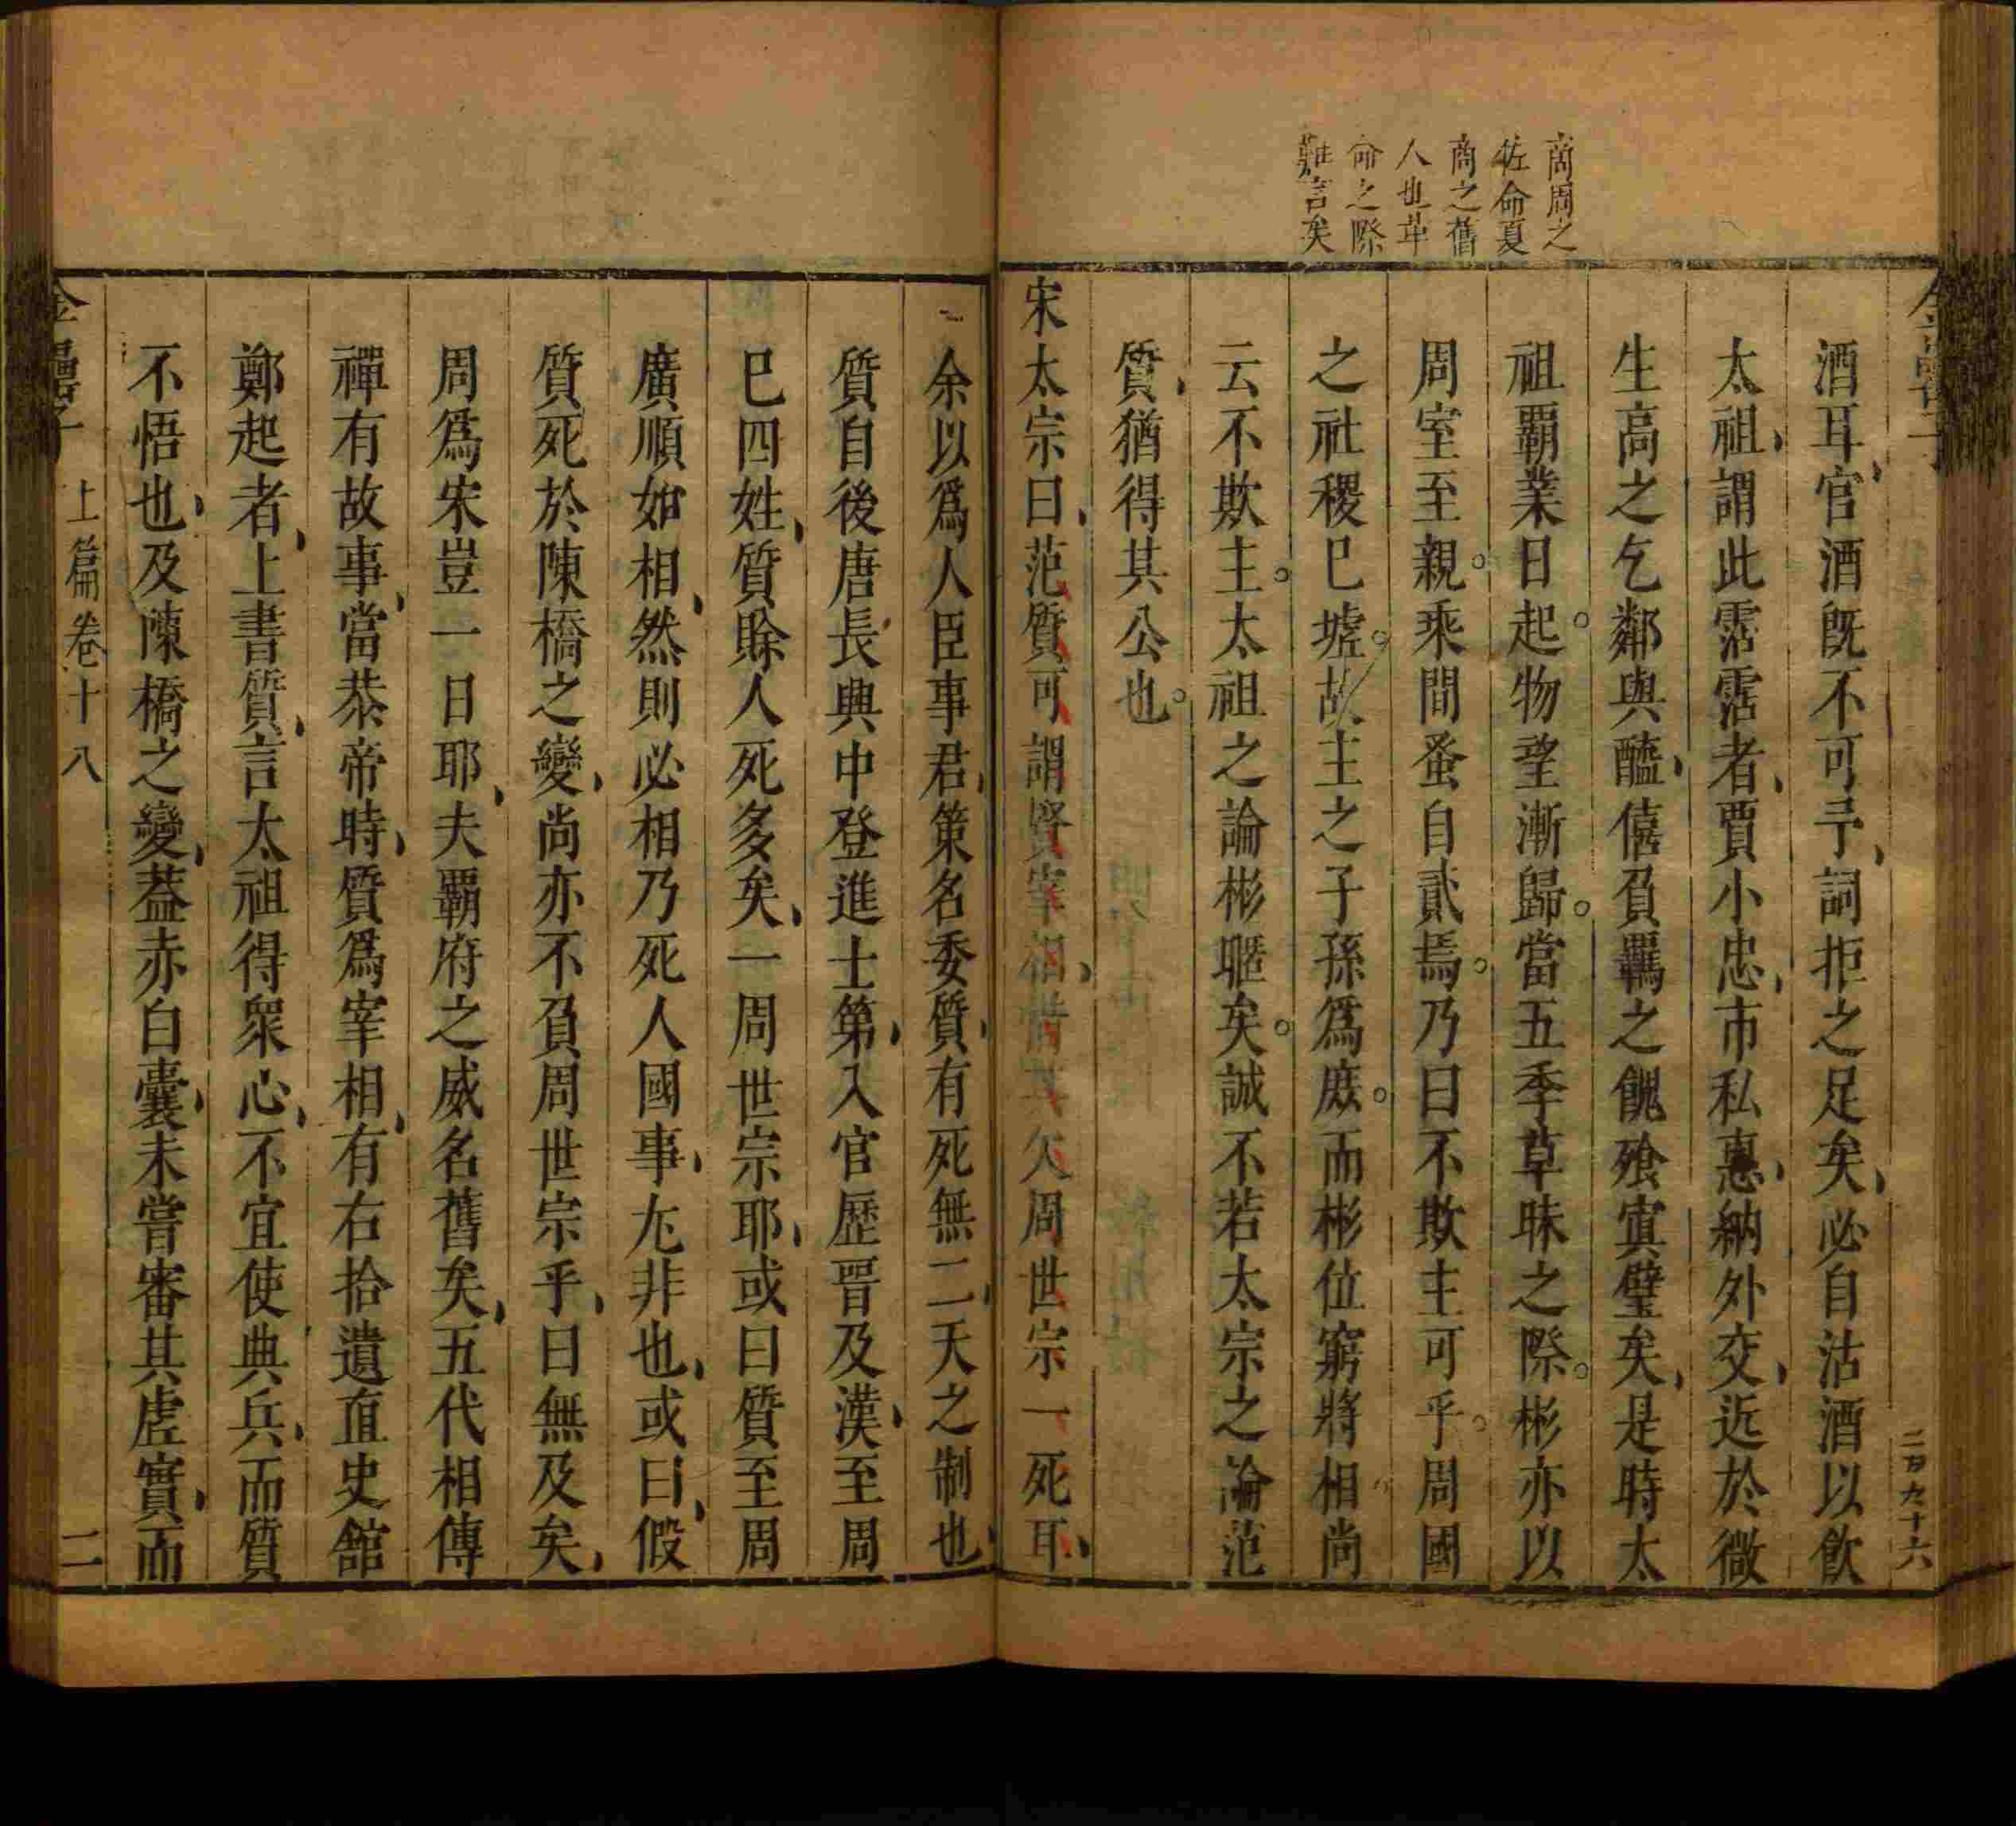 商周之
佐命夏
商之舊
人也革
命之際
難言矣
二百九十六
酒耳官酒旣不可予詞拒之足矣必自沽酒以飮
太祖謂此霑霑者賈小忠市私惠納外交近於微
生高之乞鄰與醯僖負羈之餽飱寘璧矣是時太
祖覇業日起物望漸歸當五季草昧之際彬亦以
周室至親乘間蚤自貳焉乃曰不欺主可乎周國
之社稷巳墟故主之子孫爲庶而彬位窮將相尚
云不欺主太祖之論彬暱矣誠不若太宗之論范
質猶得其公也
宋太宗曰范質可謂賢宰相惜其欠周世宗一死耳
余以爲人臣事君策名委質有死無二天之制也
質自後唐長興中登進士第入官歷晋及漢至周
巳四姓質賒人死多矣一周世宗耶或曰質至周
廣順始相然則必相乃死人國事尤非也或曰假
質死於陳橋之變尚亦不負周世宗乎曰無及矣
周爲宋豈一日耶夫覇府之威名舊矣五代相傳
禪有故事當恭帝時質爲宰相有右拾遺直史館
鄭起者上書質言太祖得衆心不宜使典兵而質
不悟也及陳橋之變葢赤白囊未嘗審其虛實而
金罍子
上篇卷十八
二